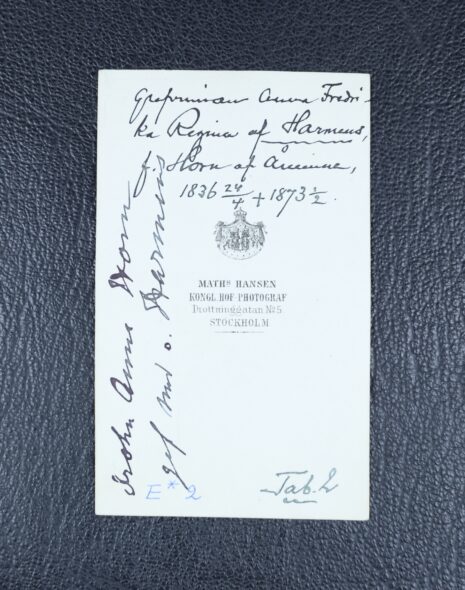 Grefvinnan Anna Fredri-
ka Regina af Harmens,
f. Horn af Åminne,
1836 24/4 + 1873 1/2.
MATHS HANSEN
KONGL. HOF-PHOTOGRAF
Drottninggatan No 5
STOCKHOLM
Anna Horn
gift med v. Harmens
E* 2
Tab. 2